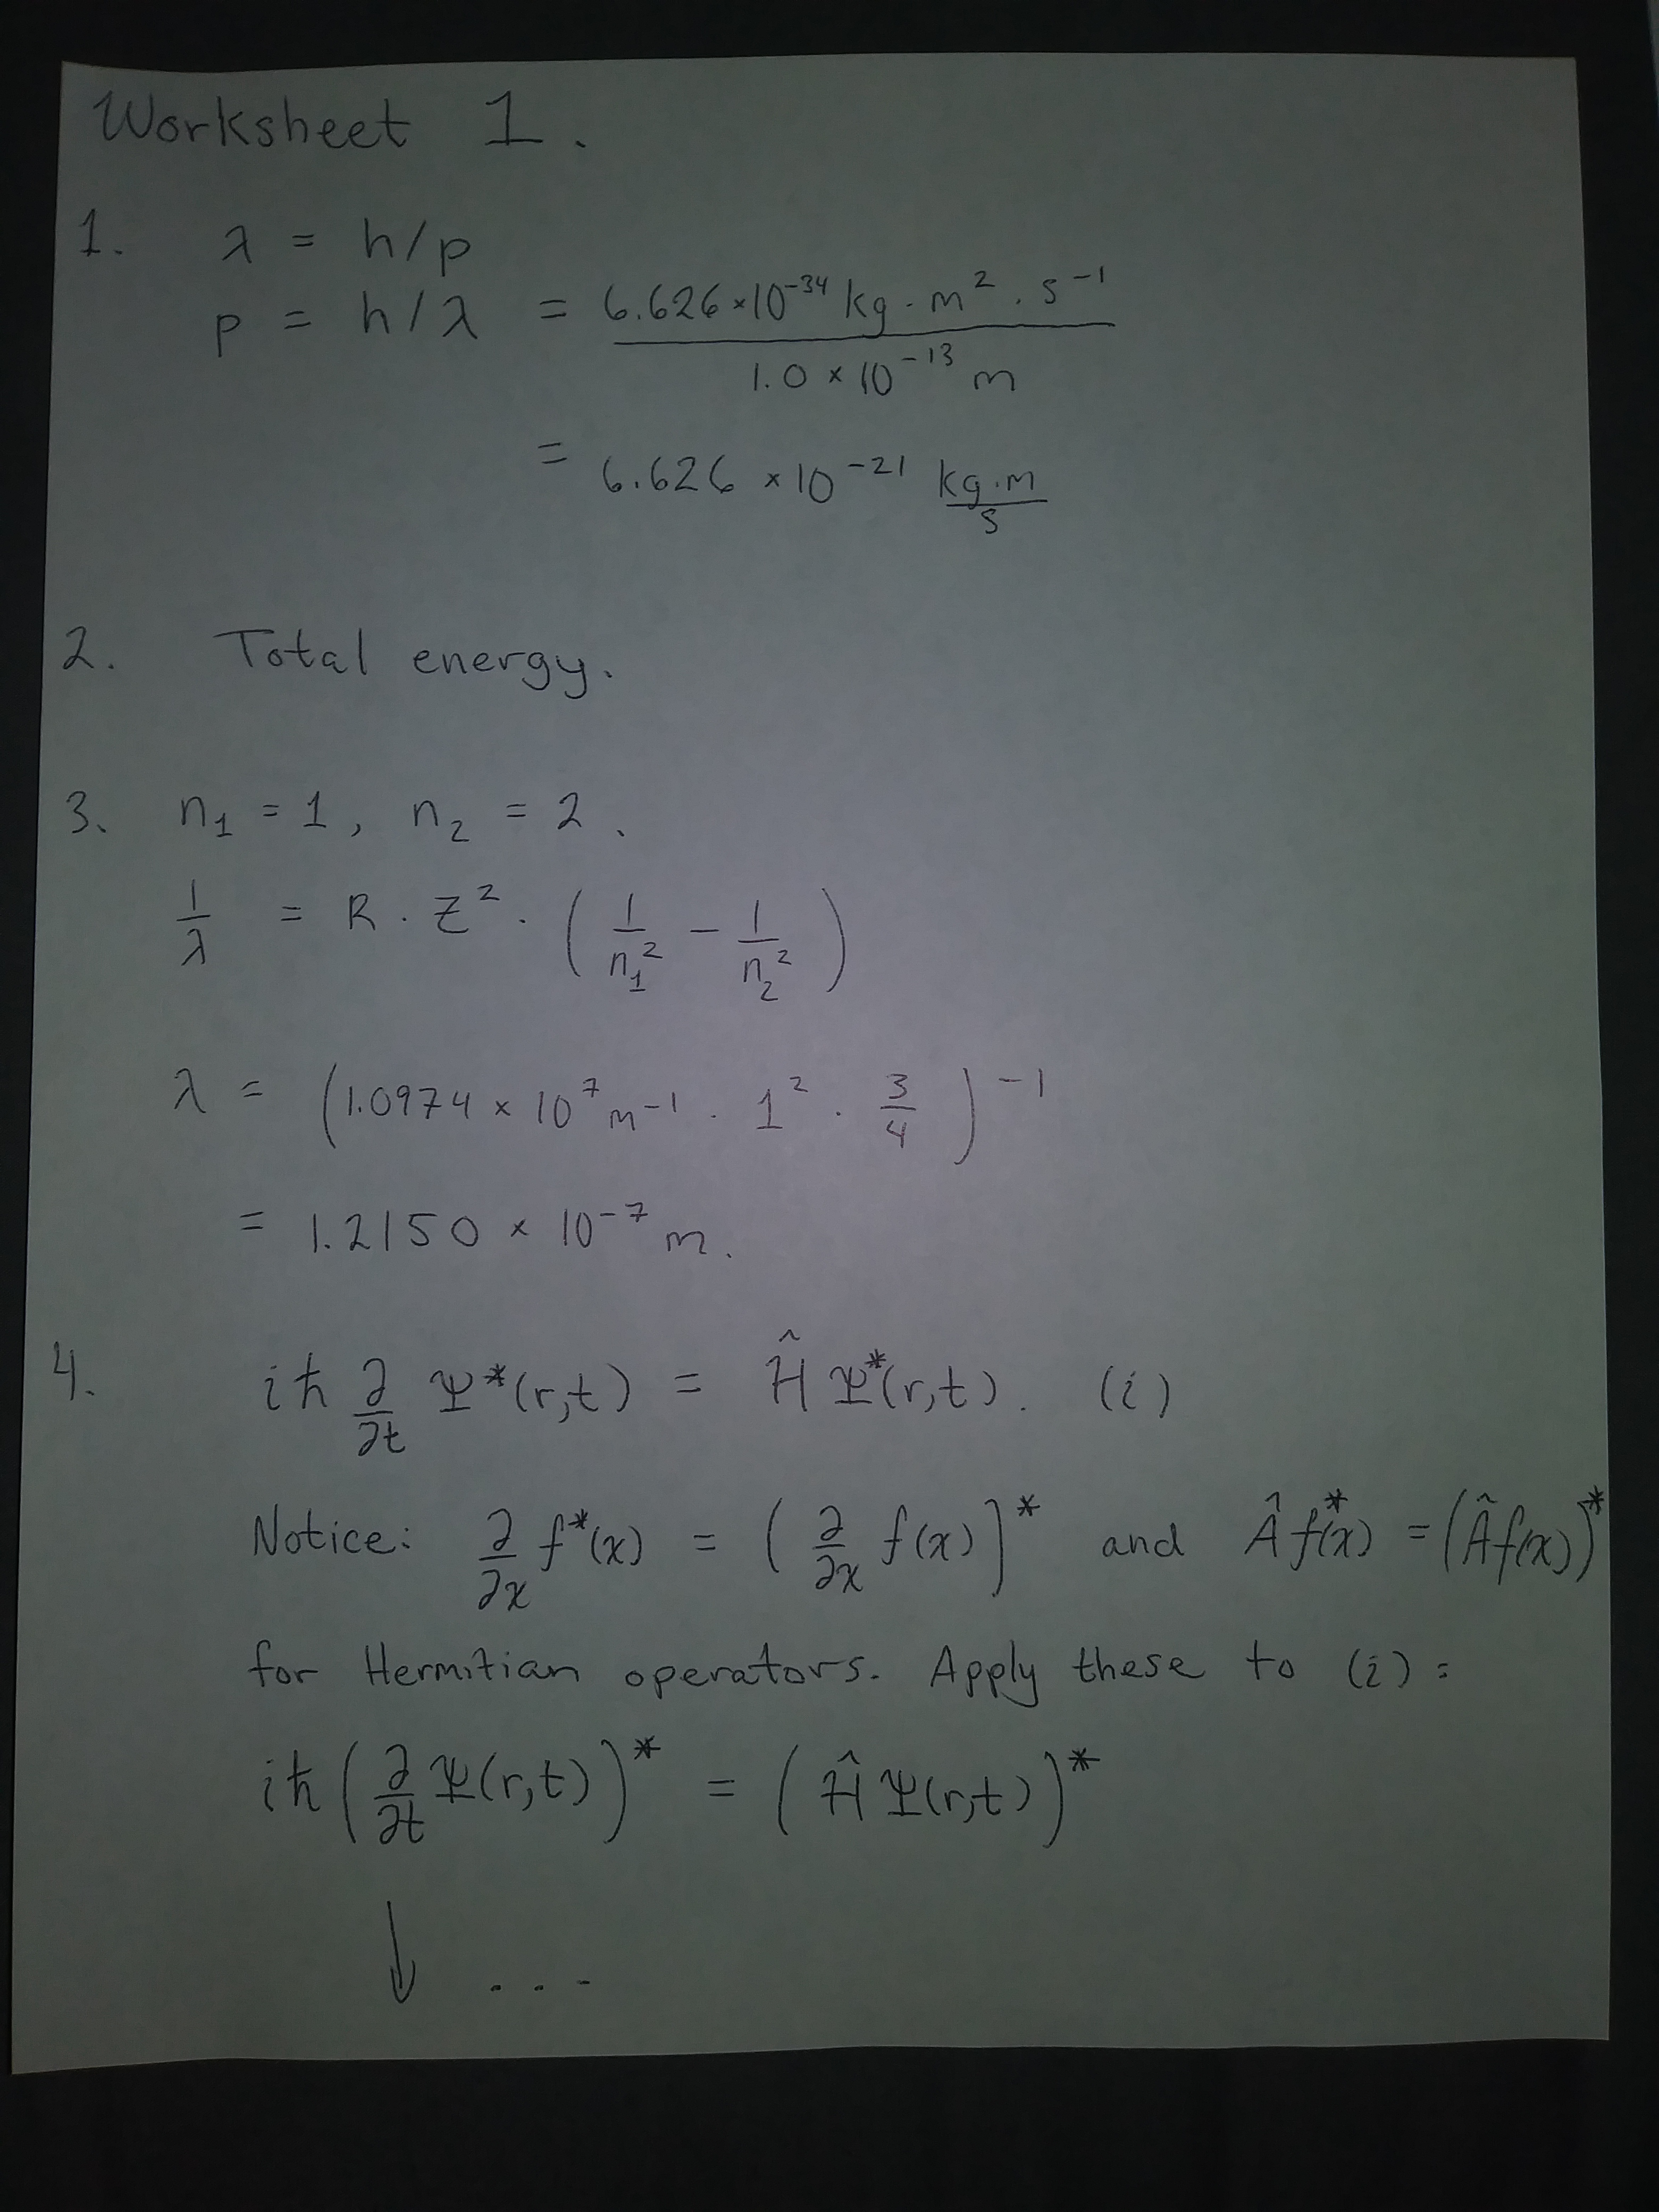 Worksheet 1.
1. λ = h/p
p = h/λ = 6.626×10⁻³⁴ kg·m²·s⁻¹ / 1.0×10⁻¹³ m
= 6.626×10⁻²¹ kg·m/s
2. Total energy.
3. n₁ = 1, n₂ = 2.
1/λ = R·Z²·(1/n₁² − 1/n₂²)
λ = (1.0974×10⁷ m⁻¹ · 1² · 3/4)⁻¹
= 1.2150×10⁻⁷ m.
4. iħ ∂/∂t Ψ*(r,t) = Ĥ Ψ*(r,t). (i)
Notice: ∂/∂x f*(x) = (∂/∂x f(x))* and Â f*(x) = (Â f(x))*
for Hermitian operators. Apply these to (i):
iħ (∂/∂t Ψ(r,t))* = (Ĥ Ψ(r,t))*
↓ ...